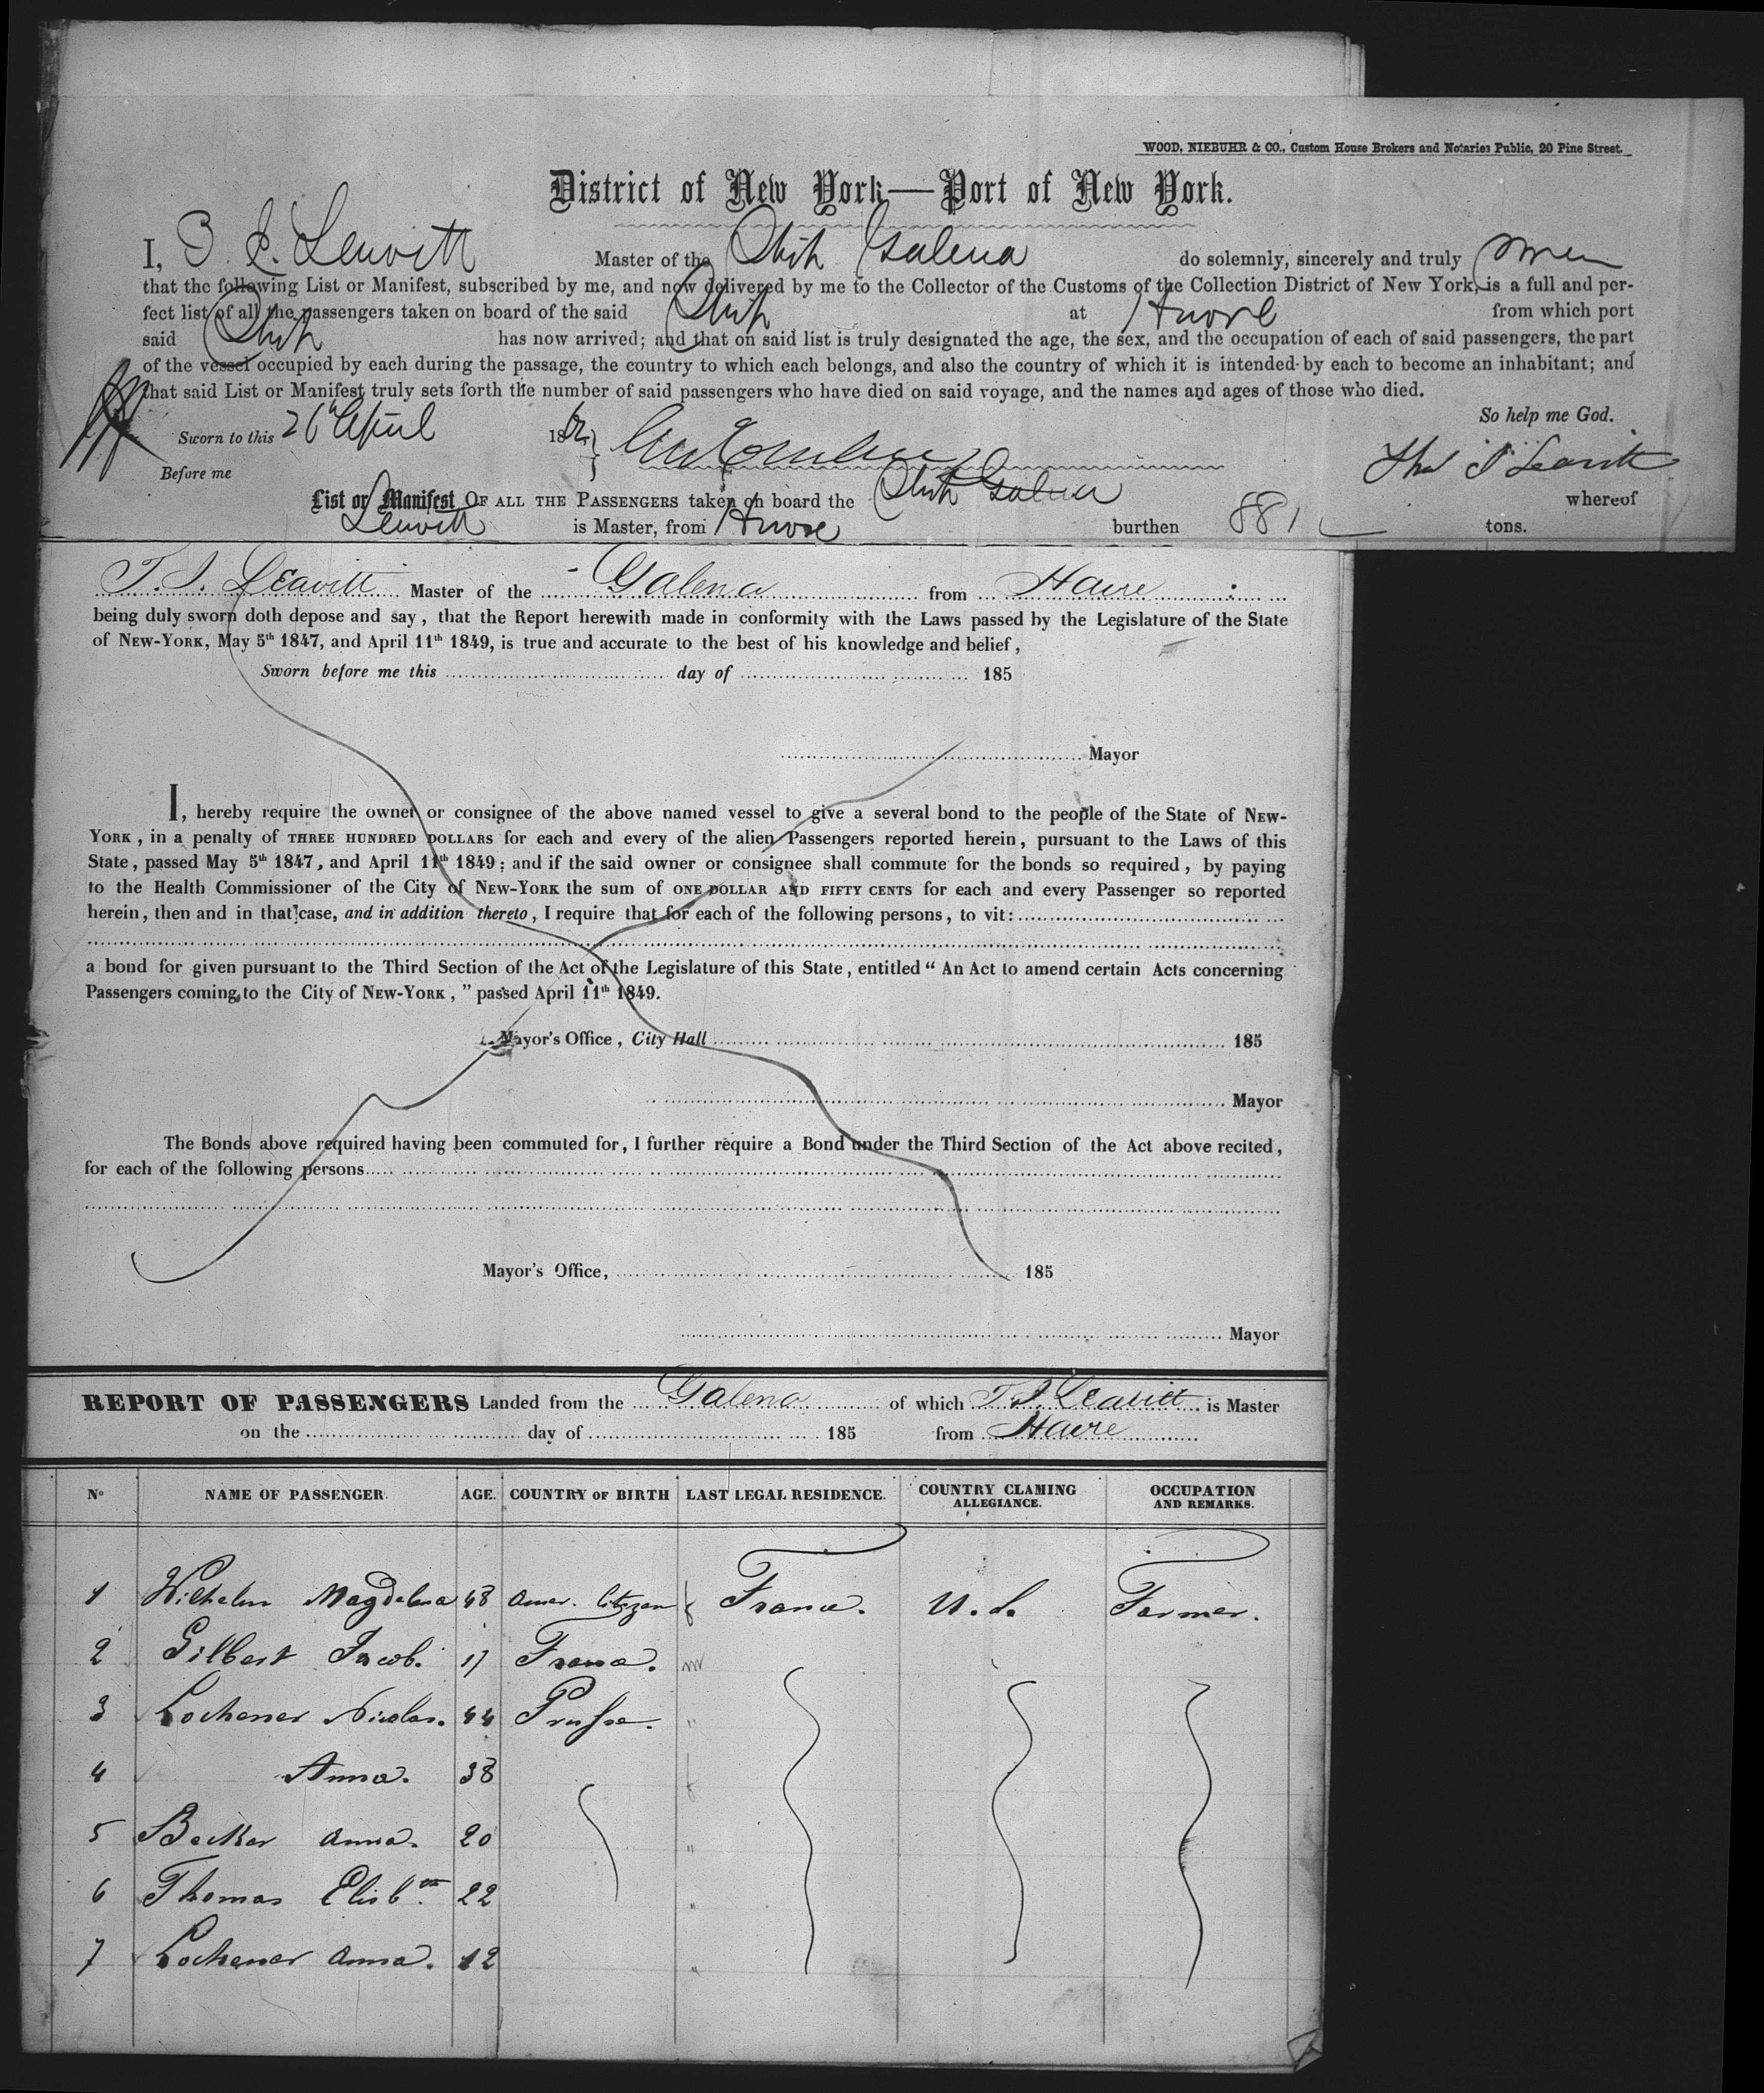 WOOD, NIEBUHR & CO., Custom House Brokers and Notaries Public, 20 Pine Street.
District of New York—Port of New York.
I, Leavitt Master of the Ship Galena do solemnly, sincerely and truly swear
that the following List or Manifest, subscribed by me, and now delivered by me to the Collector of the Customs of the Collection District of New York, is a full and per-
fect list of all the passengers taken on board of the said Ship at Havre from which port
said Ship has now arrived; and that on said list is truly designated the age, the sex, and the occupation of each of said passengers, the part
of the vessel occupied by each during the passage, the country to which each belongs, and also the country of which it is intended by each to become an inhabitant; and
that said List or Manifest truly sets forth the number of said passengers who have died on said voyage, and the names and ages of those who died.
So help me God.
Sworn to this 26th April 186
Thos J Leavitt
Before me
List or Manifest OF ALL THE PASSENGERS taken on board the Ship Galena whereof
Leavitt is Master, from Havre burthen 881 tons.
T. J. Leavitt Master of the Galena from Havre
being duly sworn doth depose and say, that the Report herewith made in conformity with the Laws passed by the Legislature of the State
of NEW-YORK, May 5th 1847, and April 11th 1849, is true and accurate to the best of his knowledge and belief,
Sworn before me this day of 185
Mayor
I, hereby require the owner or consignee of the above named vessel to give a several bond to the people of the State of NEW-
YORK, in a penalty of THREE HUNDRED DOLLARS for each and every of the alien Passengers reported herein, pursuant to the Laws of this
State, passed May 5th 1847, and April 11th 1849; and if the said owner or consignee shall commute for the bonds so required, by paying
to the Health Commissioner of the City of NEW-YORK the sum of ONE DOLLAR AND FIFTY CENTS for each and every Passenger so reported
herein, then and in that case, and in addition thereto, I require that for each of the following persons, to vit:
a bond for given pursuant to the Third Section of the Act of the Legislature of this State, entitled “ An Act to amend certain Acts concerning
Passengers coming to the City of NEW-YORK, ” passed April 11th 1849.
Mayor's Office, City Hall 185
Mayor
The Bonds above required having been commuted for, I further require a Bond under the Third Section of the Act above recited,
for each of the following persons
Mayor's Office, 185
Mayor
REPORT OF PASSENGERS Landed from the Galena of which T. J. Leavitt is Master
on the day of 185 from Havre
No NAME OF PASSENGER. AGE. COUNTRY OF BIRTH LAST LEGAL RESIDENCE. COUNTRY CLAMING ALLEGIANCE. OCCUPATION AND REMARKS.
1 Wilhelm Magdelena 48 Amer. Citizen f France. U.S. Farmer.
2 Gilbert Jacob. 17 France. m
3 Lochener Nicolas. 44 Prusse. "
4 Anna. 38 f
5 Becker Anna. 20 "
6 Thomas Elisbth. 22 "
7 Lochener Anna. 12 "